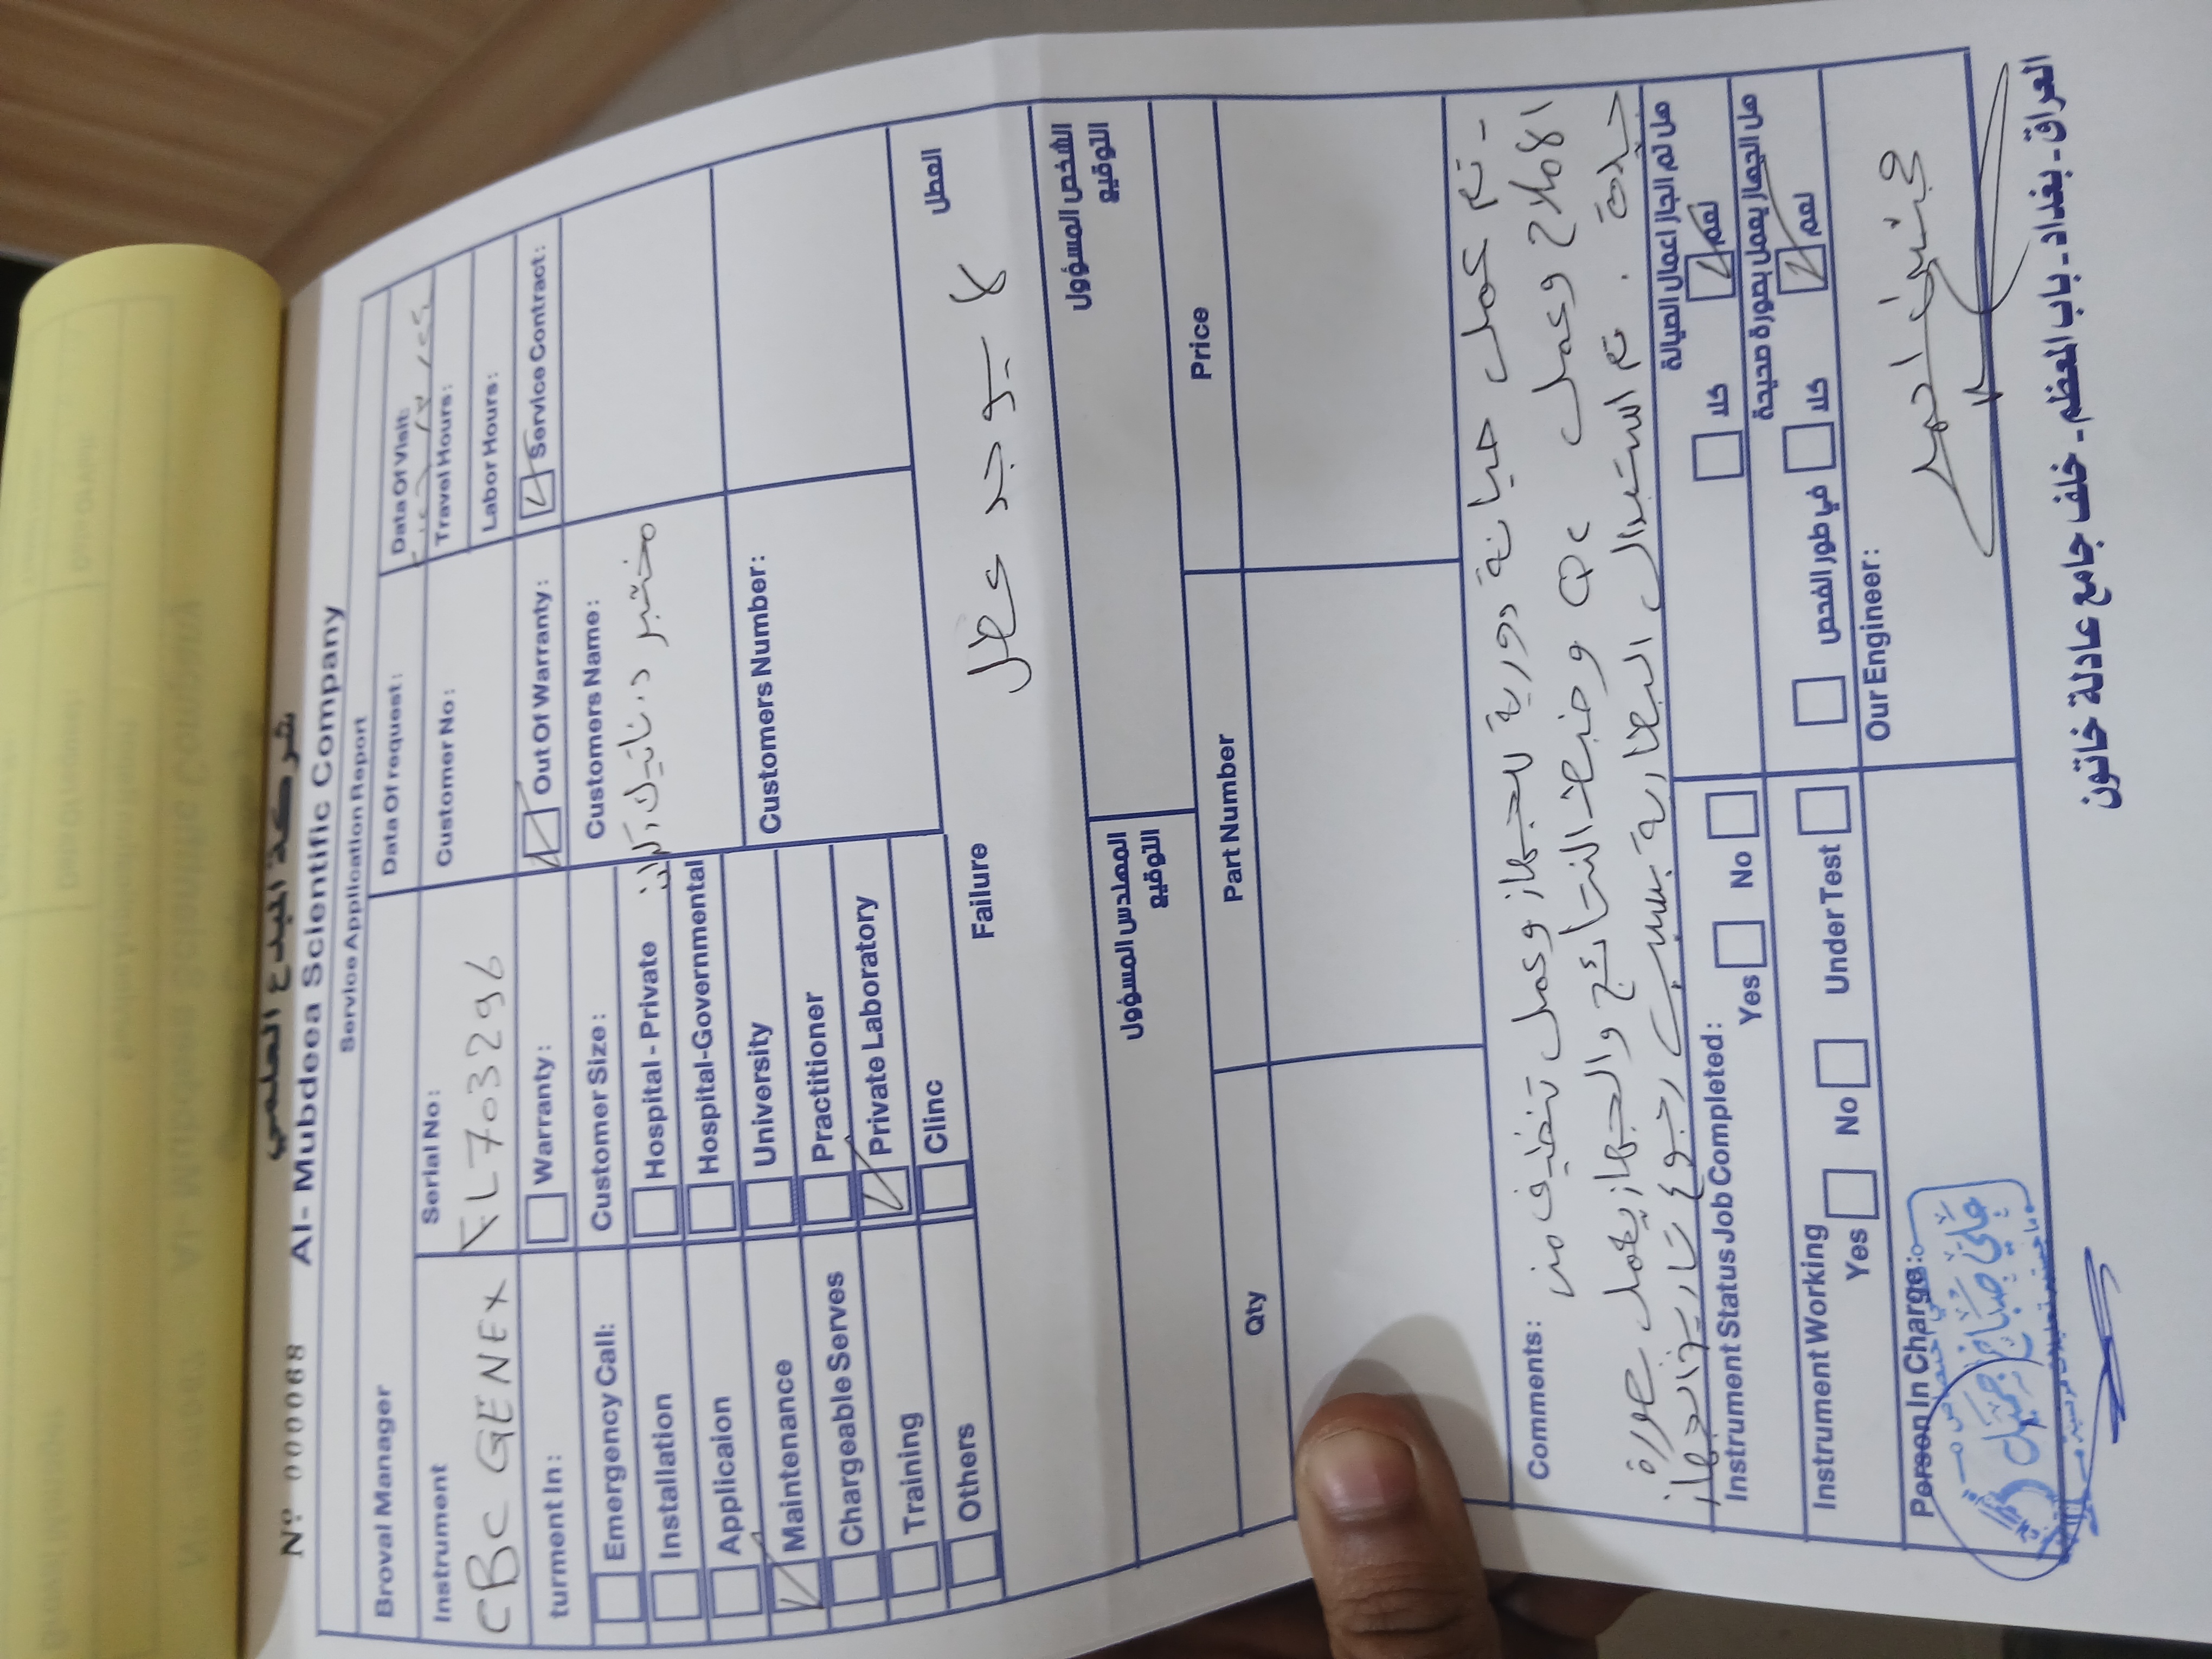 شركة المبدع العلمي
Nº 000068 Al- Mubdeea Scientific Company
Service Application Report
Broval Manager
Data Of request:
Data Of Visit:
Instrument
CBC GENEX
Serial No:
FL703296
Customer No:
Travel Hours:
Labor Hours:
turment In:
Warranty:
Out Of Warranty:
Service Contract:
Emergency Call:
Installation
Applicaion
Maintenance
Chargeable Serves
Training
Others
Customer Size:
Hospital - Private
Hospital-Governmental
University
Practitioner
Private Laboratory
Clinc
Customers Name:
مختبر
Customers Number:
Failure
العطل
لا يوجد عطل
المهندس المسؤول
التوقيع
الشخص المسؤول
التوقيع
Qty
Part Number
Price
Comments:
- تم عمل صيانة دورية للجهاز وعمل تنظيف من
الاملاح وعمل QC وضبط النتائج والجهاز يعمل بصورة
جيدة . تم استبدال البطارية بسبب رجوع تاريخ الجهاز
Instrument Status Job Completed:
Yes No
هل تم انجاز اعمال الصيانة
كلا نعم
Instrument Working
Yes No Under Test
هل الجهاز يعمل بصورة صحيحة
في طور الفحص كلا نعم
Person In Charge:
علي صباح جميل
Our Engineer:
احمد